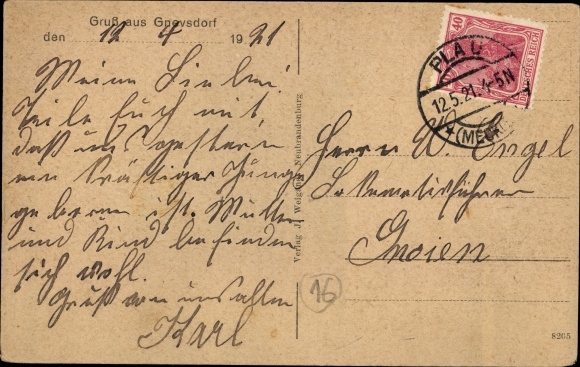 Gruß aus Gnevsdorf
den 12 4 1921
Meine Lieben
Teile Euch mit,
daß uns gestern
ein kräftiger Junge
geboren ist. Mutter
und Kind befinden
sich wohl.
Gruß von uns allen
Karl
Verlag J. Weigland Neubrandenburg
40
DEUTSCHES REICH
PLAU
12.5.21. 4-5N
*(MECK
Herrn W. Engel
Lokomotivführer
Gnoien
16
8265